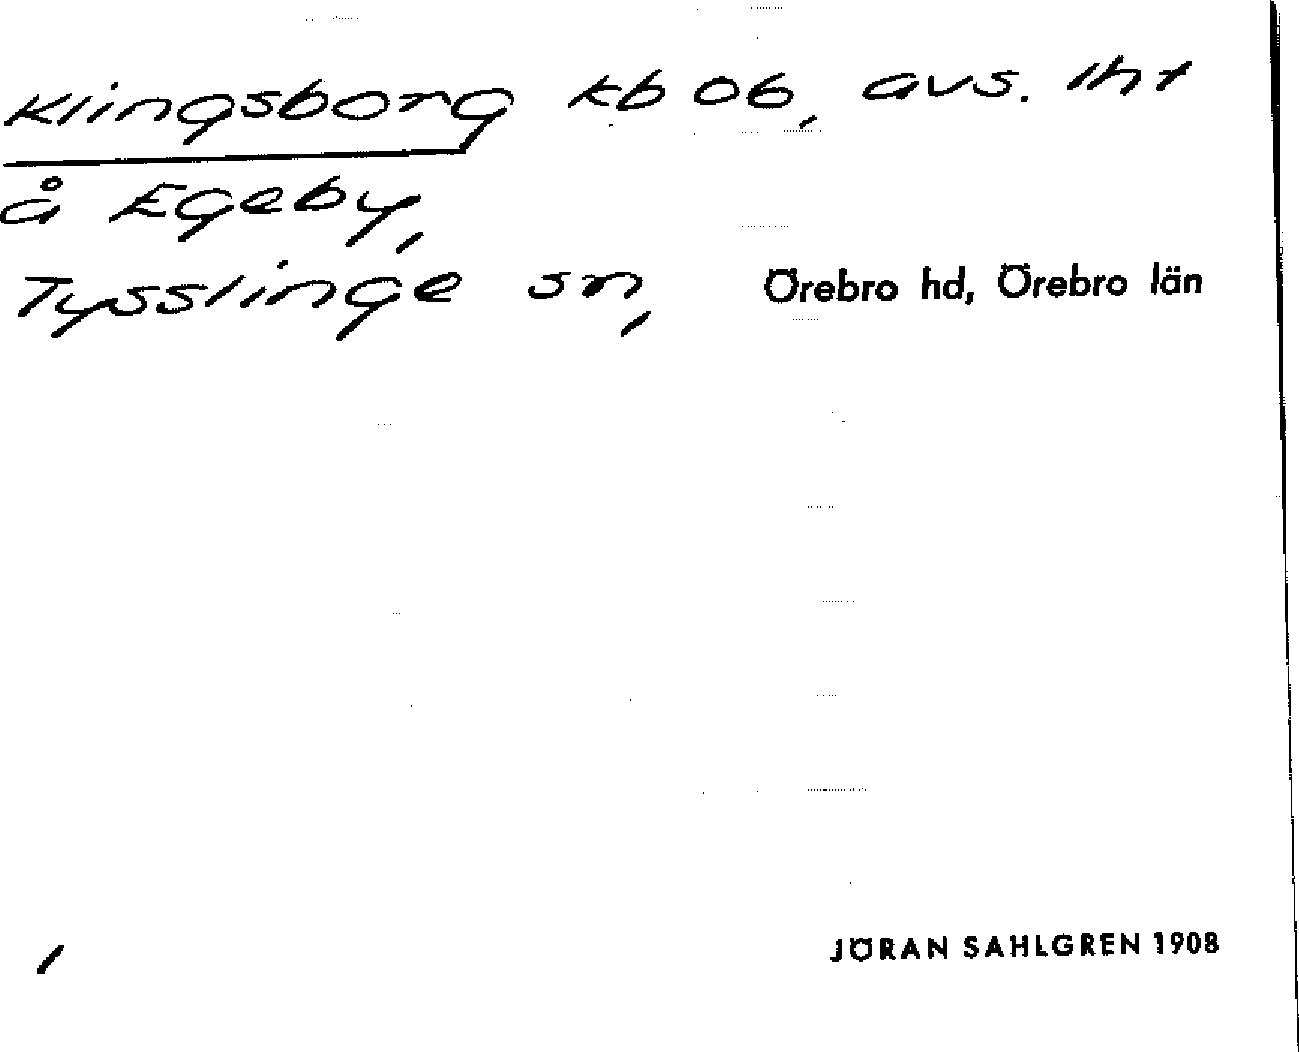 Klingsborg kb 06, avs. lht
å Egeby,
Tysslinge sn, Örebro hd, Örebro län
/ JÖRAN SAHLGREN 1908